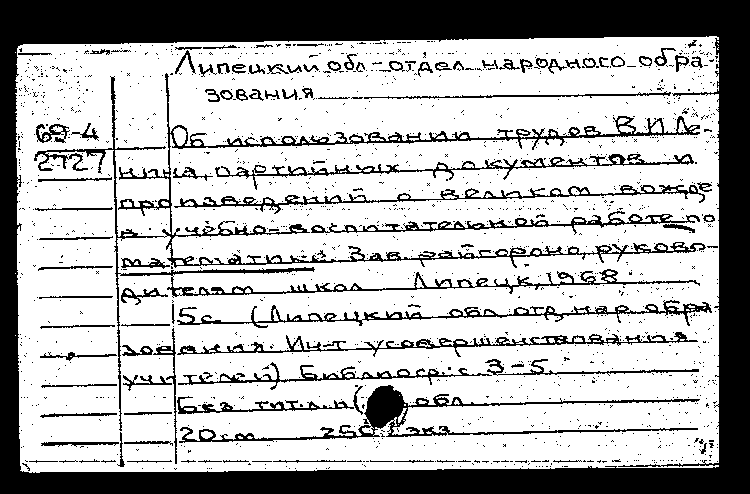 Липецкий обл-отдел народного обра-
зования
69-4
2727
Об использовании трудов В.И.Ле-
нина, партийных документов и
произведений о великом вожде
в учебно-воспитательной работе по
математике. Зав. райгороно, руково-
дителям школ Липецк, 1968
5с. (Липецкий обл отд нар обра-
зования. Ин-т усовершенствования
учителей) Библиогр.: с. 3-5.
Без тит.л. и обл.
20см 250 экз